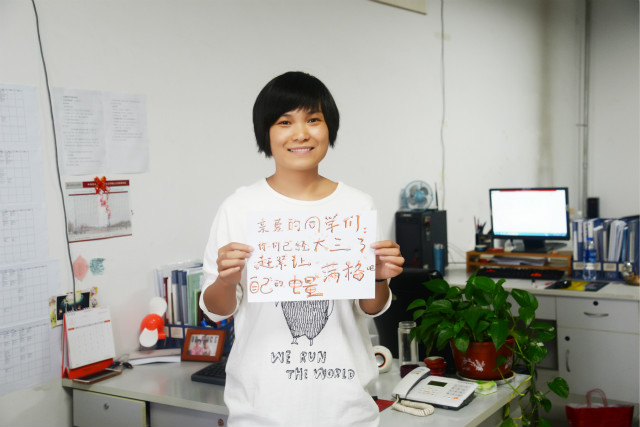 亲爱的同学们：
你们已经大三了
赶紧让
自己的电量满格吧
WE RUN
THE WORLD